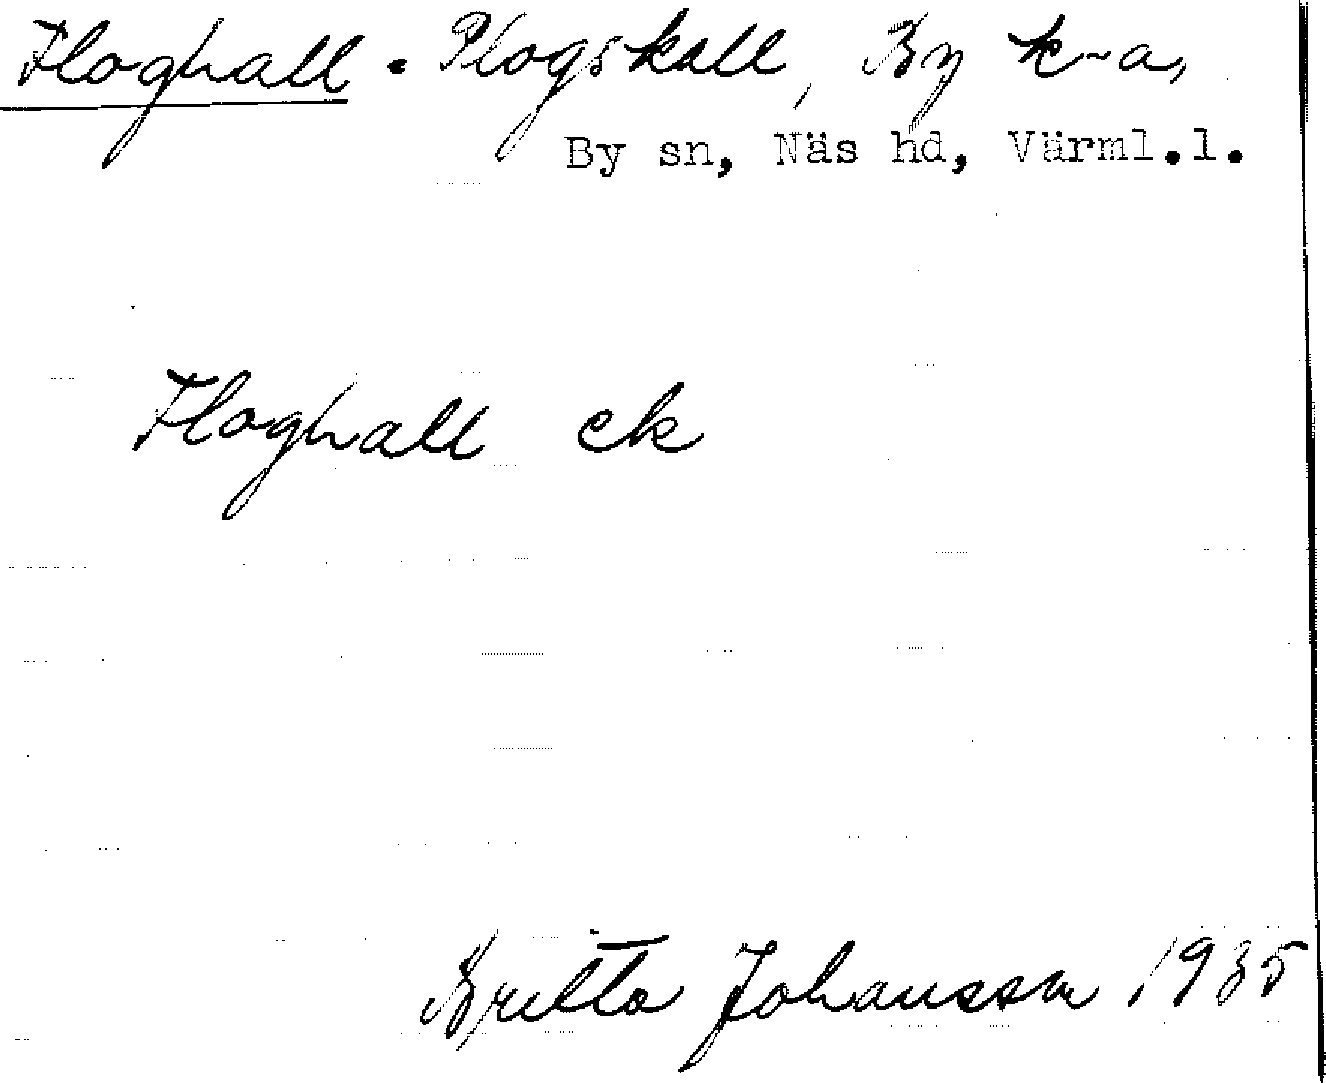 Floghall. Plogskall, By k-a,
By sn, Näs hd, Värml.l.
Floghall ek
Britta Johansson 1935